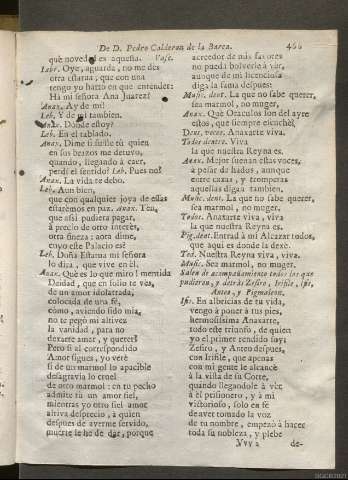 De D. Pedro Calderon de la Barca. 466
què novedad es aquesta. Vase.
Leb. Oye, aguarda, no me dès
otra estatua, que con una
tengo yo harto en que entender:
Ha mi señora Ana Juarez!
Anax. Ay de mi!
Leb. Y de mi tambien.
Anax. Donde estoy?
Leb. En el tablado.
Anax. Dime si fuiste tù quien
en sus brazos me detuvo,
quando, llegando à caer,
perdì el sentido? Leb. Pues no?
Anax. La vida te debo.
Leb. Aun bien,
que con qualquier joya de essas
estarèmos en paz. Anax. Ten,
que assi pudiera pagar,
à precio de otro interès,
otra fineza: aora dime,
cuyo este Palacio es?
Leb. Doña Estatua mi señora
lo dirà, que vive en èl.
Anax. Què es lo que miro! mentida
Deidad, que en solio te vès,
de un amor idolatrada,
colocada de una fè,
còmo, aviendo sido mia,
no te pegò mi altivez
la vanidad, para no
dexarte amar, y querer?
Pero si al correspondido
Amor sigues, yo verè
si de un marmol lo apacible
desagravia lo cruel
de otro marmol: en tu pecho
admite tù un amor fiel,
mientras yo otro fiel amor
altiva desprecio, à quien
despues de averme servido,
muerte le he de dar, porque
acreedor de mis favores
no pueda bolverle à vèr,
aunque de mi licenciosa
diga la fama despues:
Music. dent. La que no sabe querer,
sea marmol, no muger,
Anax. Què Oraculos son del ayre
estos, que siempre escuchè,
Dent. voces. Anaxarte viva.
Todos dentro. Viva
la que nuestra Reyna es.
Anax. Mejor suenan estas voces,
à pesar de hados, aunque
entre caxas, y trompetas
aquellas digan tambien.
Music. dent. La que no sabe querer,
sea marmol, no muger.
Todos. Anaxarte viva, viva
la que nuestra Reyna es.
Pig. dent. Entrad à mi Alcazar todos,
que aqui es donde la dexè.
Tod. Nuestra Reyna viva, viva.
Music. Sea marmol, no muger.
Salen de acompañamiento todos los que
pudieran, y detràs Zefiro, Irifile, Ifis,
Anteo, y Pigmaleon.
Ifis. En albricias de tu vida,
vengo à poner à tus pies,
hermosissima Anaxarte,
todo este triunfo, de quien
yo el primer rendido soy;
Zefiro, y Anteo despues,
con Irifile, que apenas
con mi gente le alcancè
à la vista de su Corte,
quando llegandole à vèr
à èl prisionero, y à mi
victorioso, solo en fè
de aver tomado la voz
de tu nombre, empezò à hacer
toda su nobleza, y plebe
Vvv 2 de-